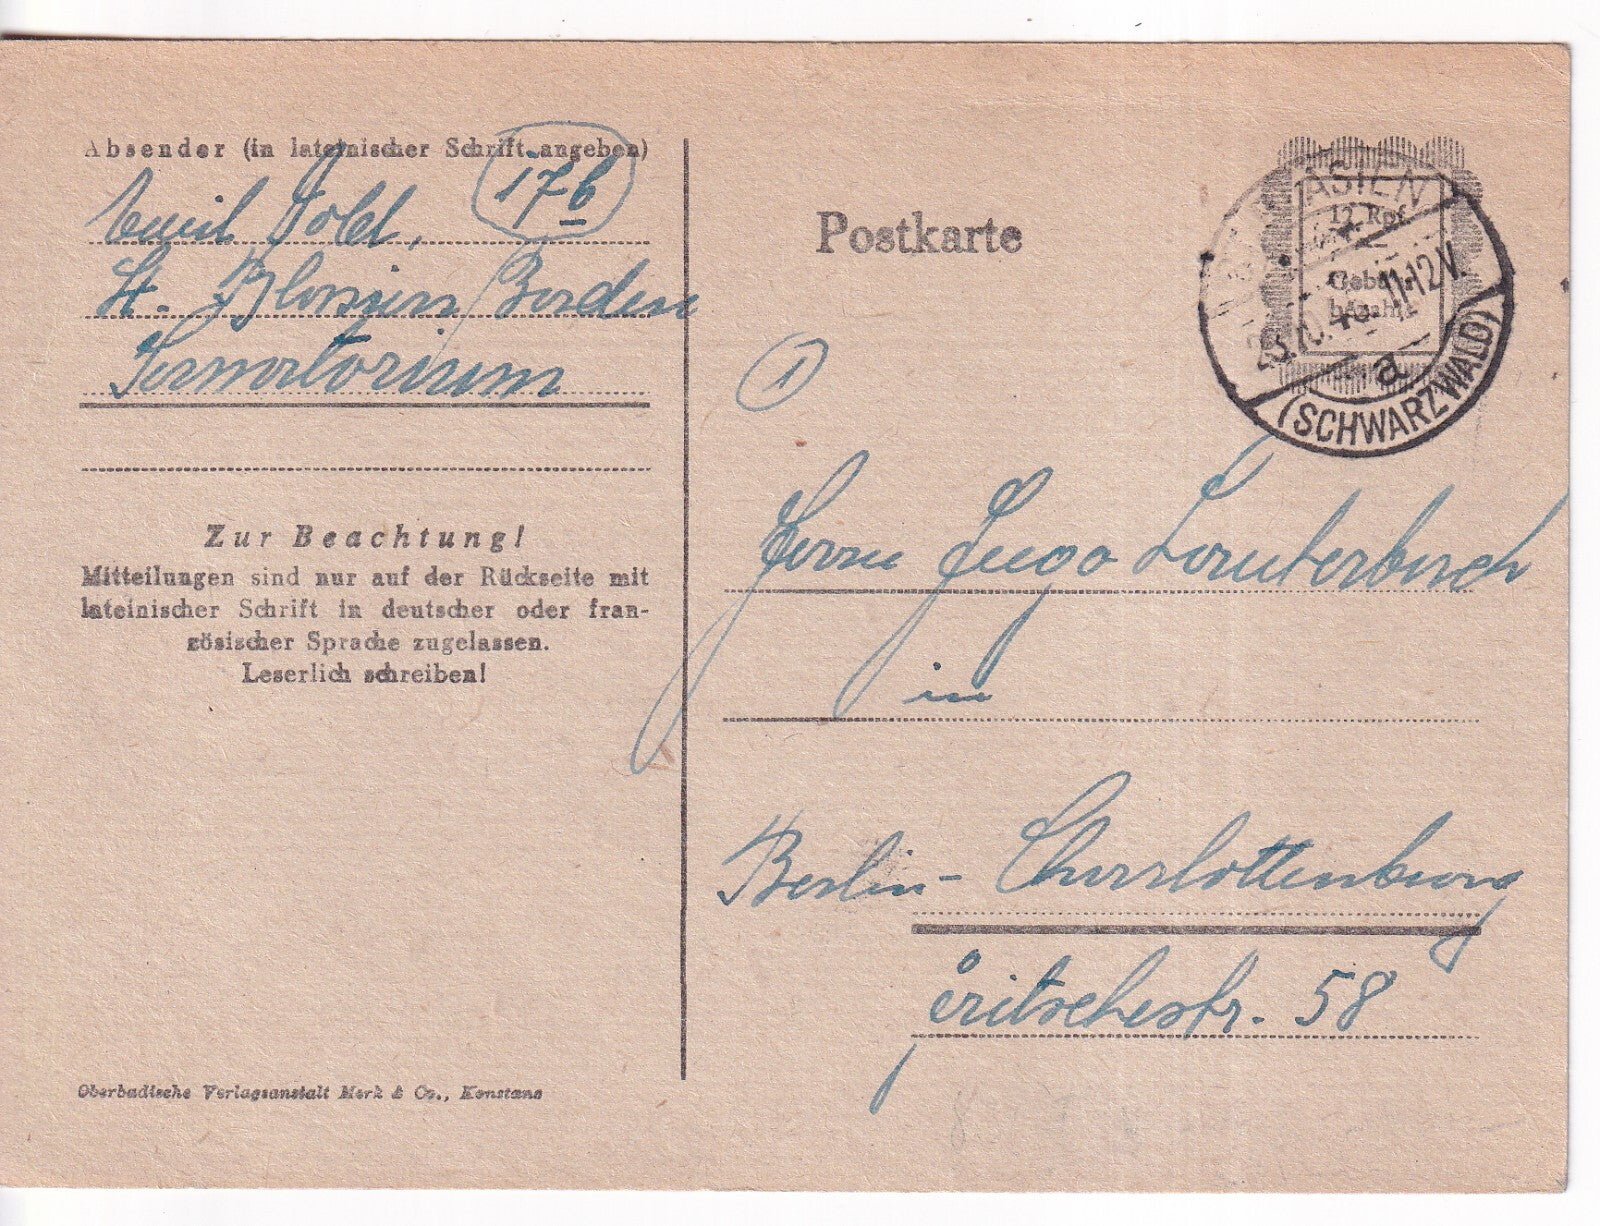 Absender (in lateinischer Schrift angeben)
17b
Emil Dold,
St. Blasien / Baden
Sanatorium
Zur Beachtung!
Mitteilungen sind nur auf der Rückseite mit
lateinischer Schrift in deutscher oder fran-
zösischer Sprache zugelassen.
Leserlich schreiben!
Oberbadische Verlagsanstalt Merk & Co., Konstanz
Postkarte
12 Rpf
Gebühr
bezahlt
BLASIEN
10.46. 11-12V.
a
(SCHWARZWALD)
1
Herrn Hugo Lauterbach
in
Berlin-Charlottenburg
Fritschestr. 58